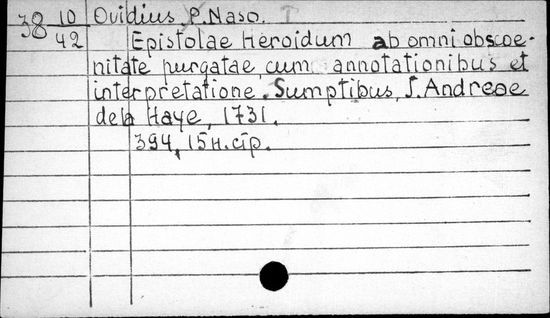 38 10 Ovidius P. Naso.
42 Epistolae Heroidum ab omni obscoe-
nitate purgatae, cum annotationibus et
interpretatione. Sumptibus, J. Andreae
de la Haye, 1731.
394, 15 н. стр.